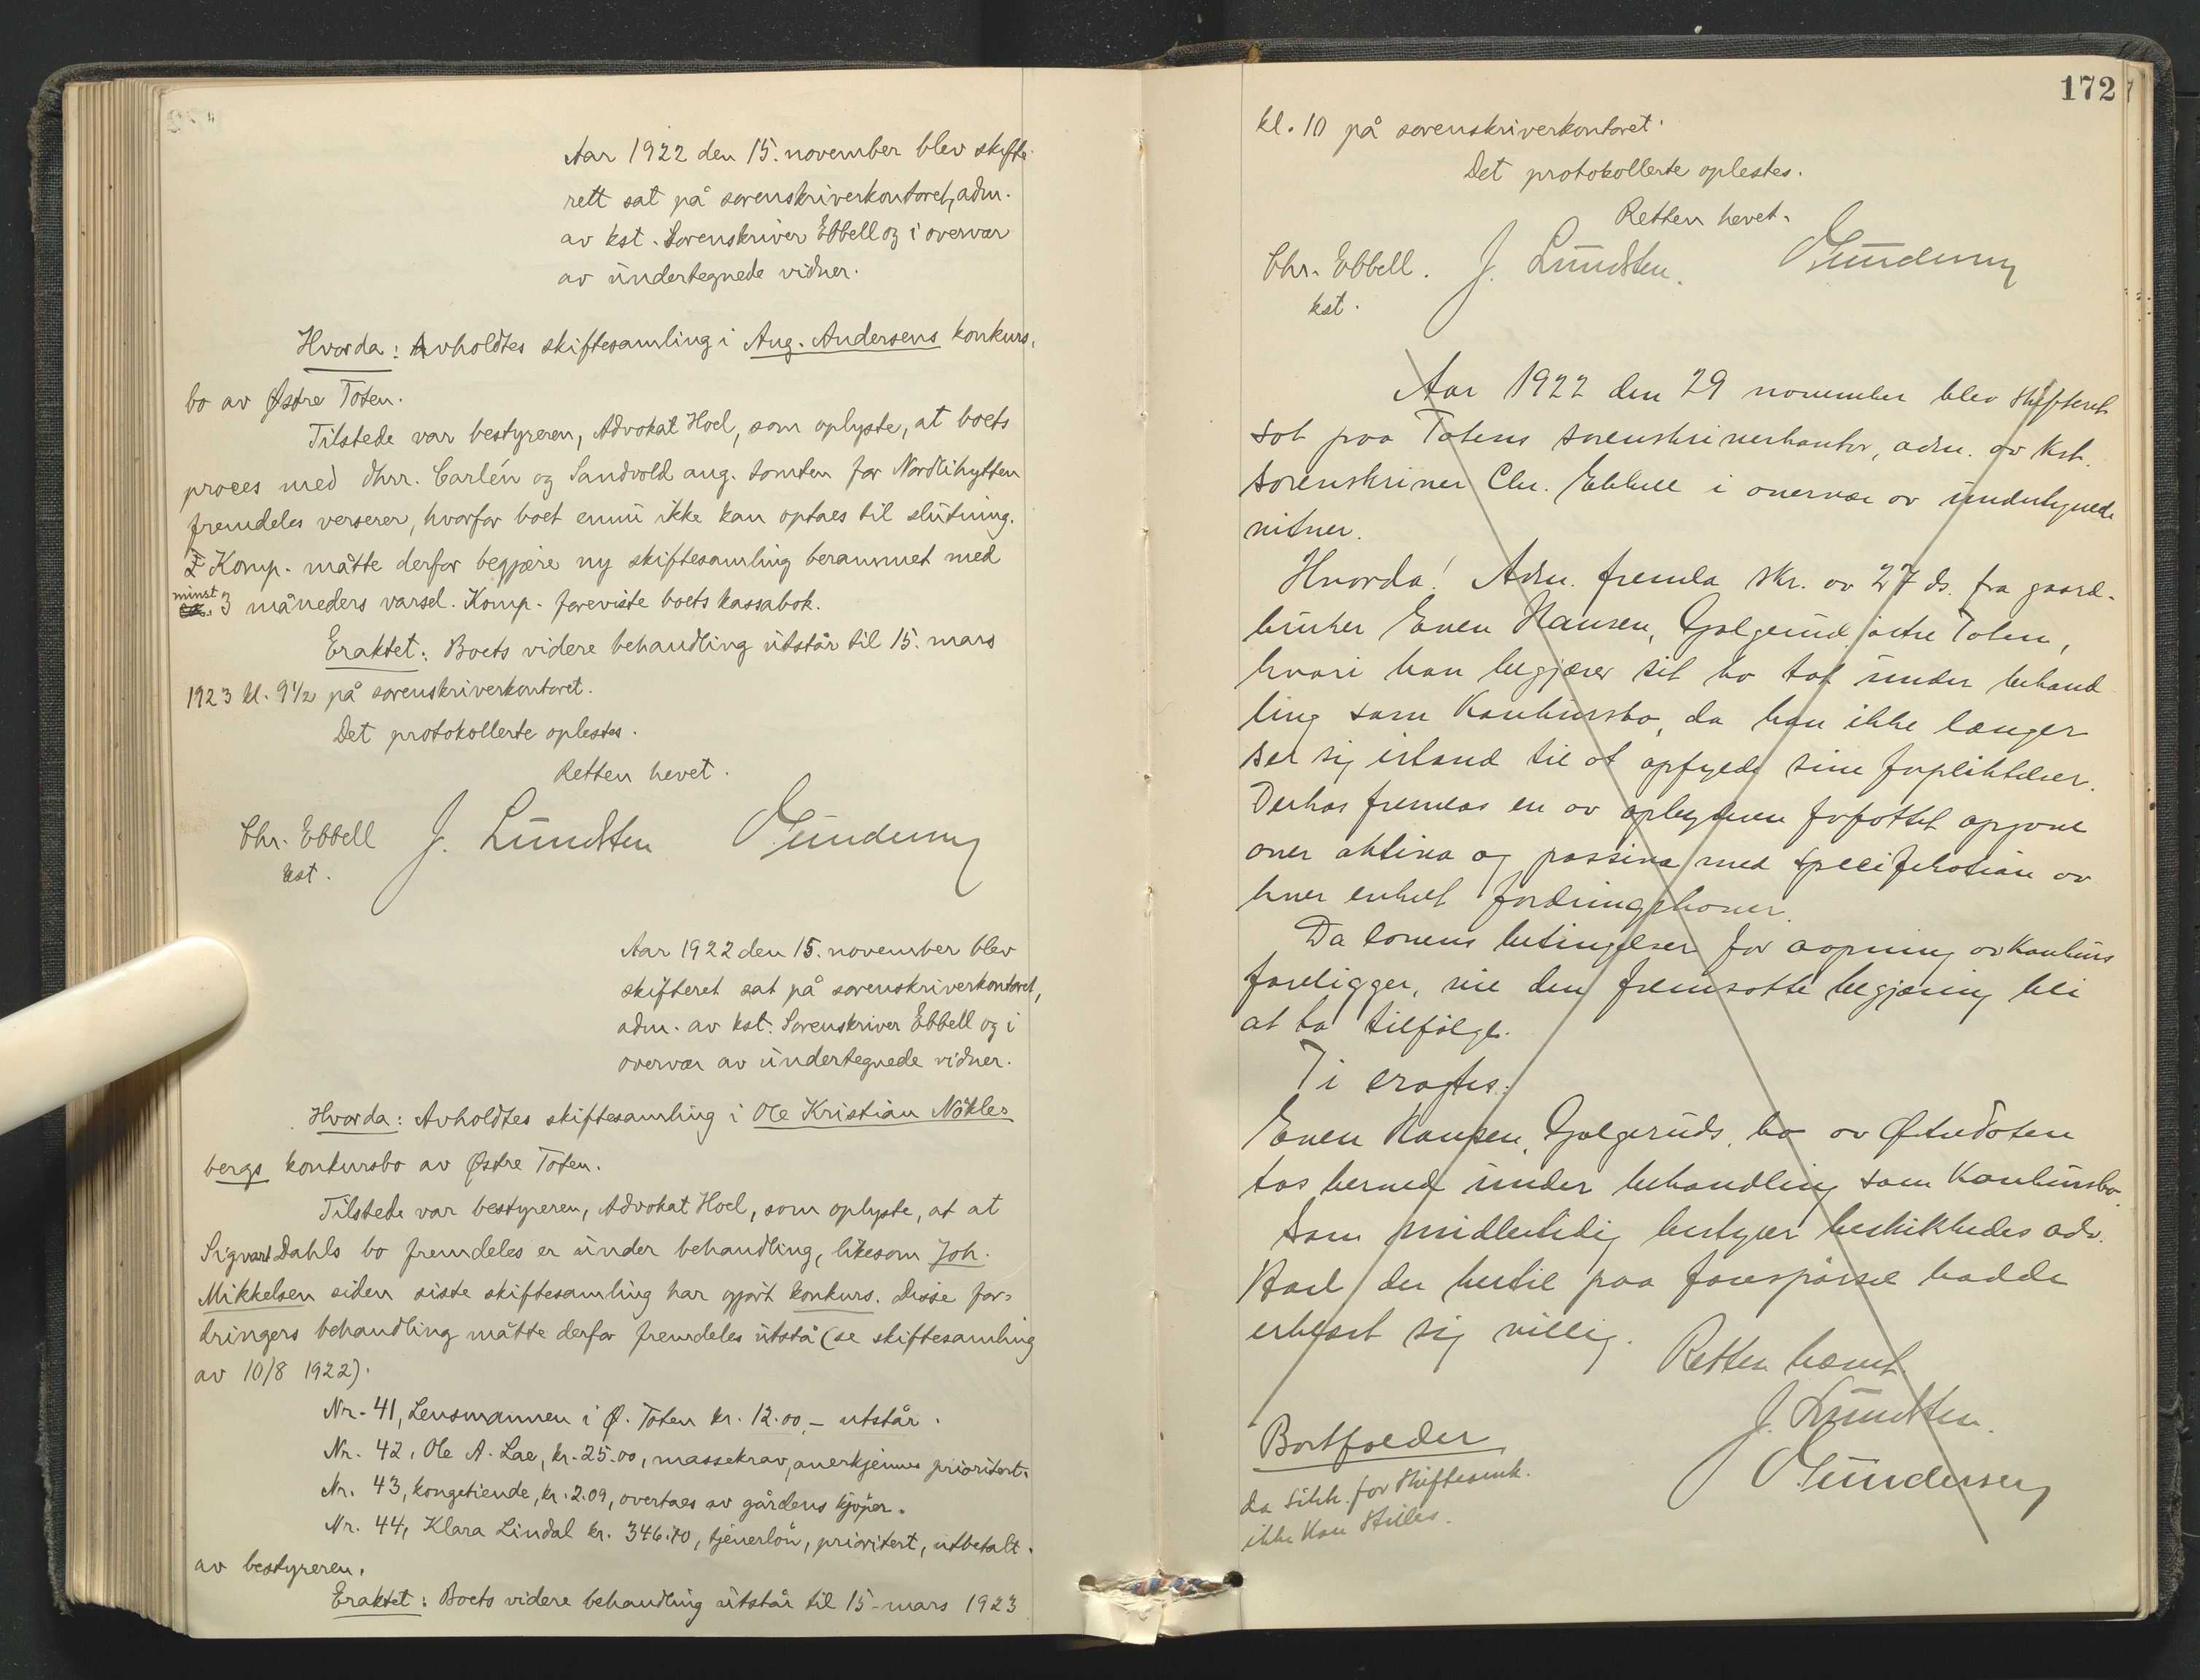 Aar 1922 den 15. november blev skifte-
rett sat på sorenskriverkontoret, adm.
av kst. Sorenskriver Ebbell og i overvær
av undertegnede vidner.
Hvorda: Avholdtes skiftesamling i Aug. Andersens konkurs-
bo av Østre Toten.
Tilstede var bestyreren, Advokat Hoel, som oplyste, at boets
proces med dhrr. Carlén og Sandvold ang. tomten for Nordlihytten
fremdeles verserer, hvorfor boet ennu ikke kan optaes til slutning.
Komp. måtte derfor begjære ny skiftesamling berammet med
minst
ca. 3 måneders varsel. Komp. foreviste boets kassabok.
Eraktet: Boets videre behandling utstår til 15. mars
1923 kl. 9½ på sorenskriverkontoret.
Det protokollerte oplestes.
Retten hevet.
Chr. Ebbell J. Lundsten Gundersen
kst.
Aar 1922 den 15. november blev
skifteret sat på sorenskriverkontoret,
adm. av kst. Sorenskriver Ebbell og i
overvær av undertegnede vidner.
Hvorda: Avholdtes skiftesamling i Ole Kristian Nökles
bergs konkursbo av Østre Toten.
Tilstede var bestyreren, Advokat Hoel, som oplyste, at at
Sigvart Dahls bo fremdeles er under behandling, likesom Joh.
Mikkelsen siden siste skiftesamling har gjort konkurs. Disse for-
dringers behandling måtte derfor fremdeles utstå (se skiftesamling
av 10/8 1922).
Nr. 41, Lensmannen i Ø. Toten kr. 12.00,- utstår.
Nr. 42, Ole A. Lae, kr. 25.00, massekrav, anerkjennes prioritert.
Nr. 43, kongetiende, kr. 2.09, overtaes av gårdens kjöper.
Nr. 44, Klara Lindal kr. 346.70, tjenerlön, prioritert, utbetalt
av bestyreren.
Eraktet: Boets videre behandling utstår til 15-mars 1923
172
kl. 10 på sorenskriverkontoret.
Det protokollerte oplestes.
Retten hevet.
Chr. Ebbell. J. Lundsten. Gundersen
kst.
Aar 1922 den 29 november blev skifteret
sat paa Totens sorenskriverkontor, adm. av kst.
sorenskriver Chr. Ebbell i overvær av undertegnede
vitner.
Hvorda! Adm. fremla skr. av 27 ds. fra gaard-
bruker Even Hansen, Gjølgerud, östre Toten,
hvori han begjærer sit bo tat under behand
ling som konkursbo, da han ikke længer
ser sig istand til at opfylde sine forpliktelser.
Derhos fremlas en av oplegderen forfattet opgave
over aktiva og passiva med specifikation av
hver enkelt fordringshaver.
Da lovens betingelser for aapning av konkurs
foreligger, vil den fremsatte begjæring bli
at ta tilfölge.
Ti eragtes:
Even Hansen, Gjølgeruds bo av Östre Toten
tas herved under behandling som konkursbo.
Som midlertidig bestyrer beskikkedes adv.
Hoel der hertil paa forespörsel hadde
erklært sig villig.
Retten hævet
J. Lundsten.
Gundersen
Bortfalder
da sikk. for skifteomk.
ikke kan stilles.